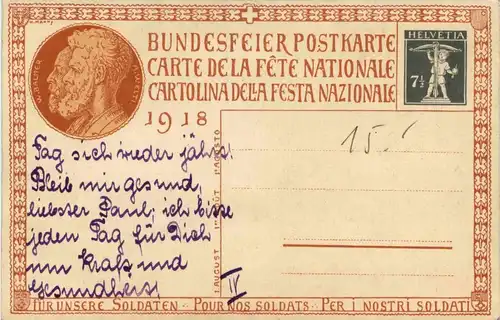 BUNDESFEIER POSTKARTE
CARTE DE LA FÊTE NATIONALE
CARTOLINA DELLA FESTA NAZIONALE
1918
HELVETIA
7½
W. BALMER
15.-
Tag sich wieder jährt!
Bleib mir gesund,
liebster Paul, ich bitte
jeden Tag für Dich
um Kraft und
Gesundheit!
IV
1. AUGUST 1er AOÛT 1° AGOSTO
FÜR UNSERE SOLDATEN · POUR NOS SOLDATS · PER I NOSTRI SOLDATI